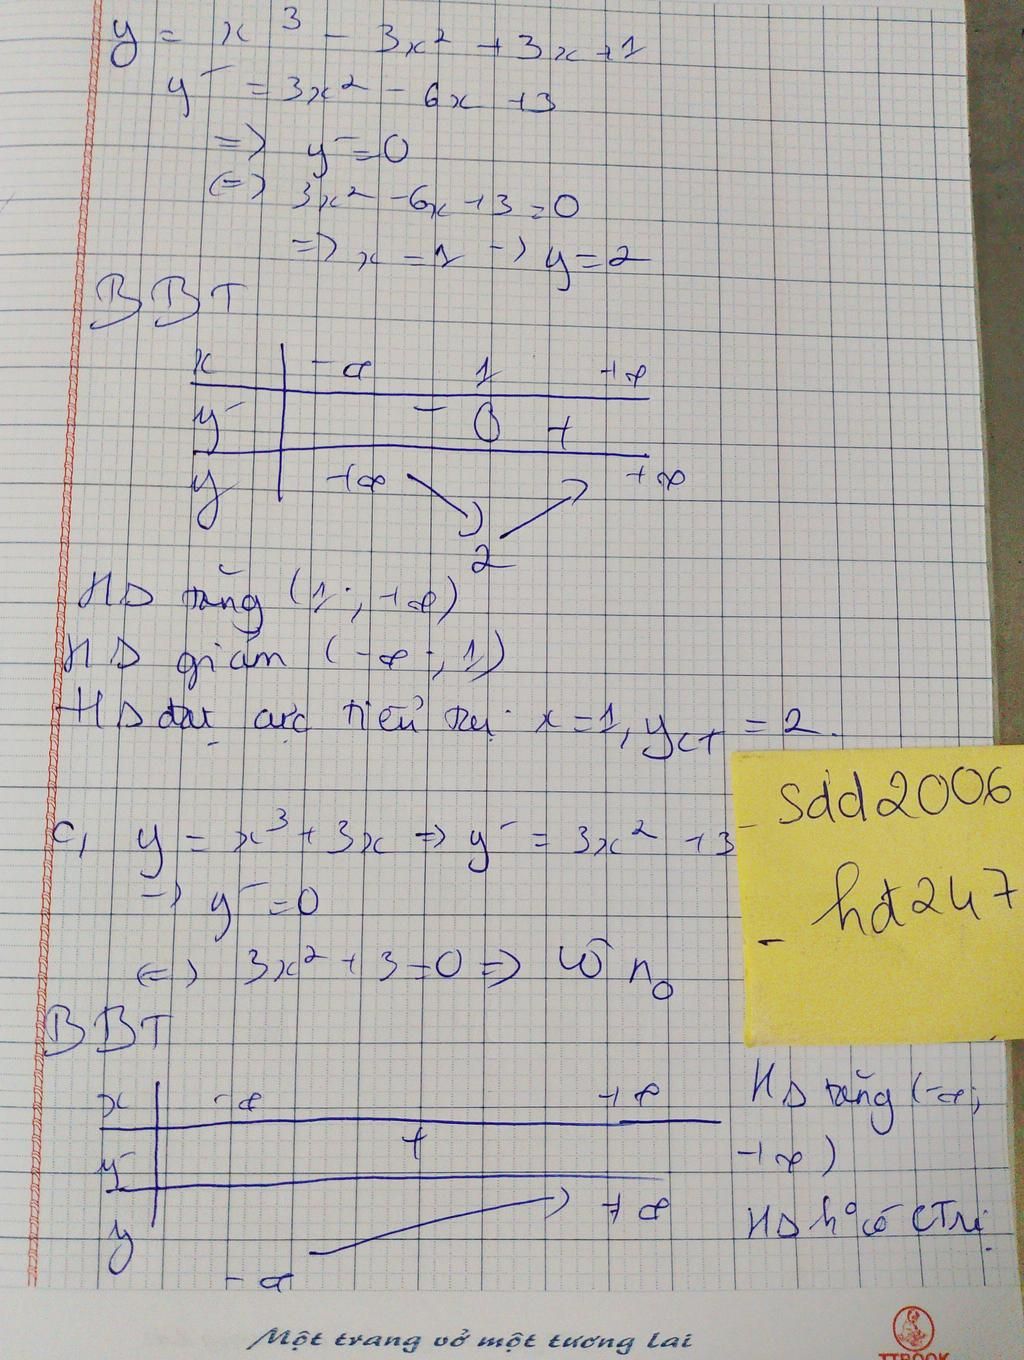 y = x³ - 3x² + 3x + 1
y' = 3x² - 6x + 3
=> y' = 0
<=> 3x² - 6x + 3 = 0
=> x = 1 -> y = 2
BBT
x -∞ 1 +∞
y' - 0 +
y +∞ 2 +∞
HS tăng (1; +∞)
HS giảm (-∞; 1)
HS đạt cực tiểu tại x = 1, yCT = 2.
c, y = x³ + 3x => y' = 3x² + 3
-> y' = 0
<=> 3x² + 3 = 0 => vô n₀
BBT
x -∞ +∞
y' +
y -∞ +∞
HS tăng (-∞;
+∞)
HS k° có CTrị
- sdd2006
- hđ247
Một trang vở một tương lai
TTBOOK